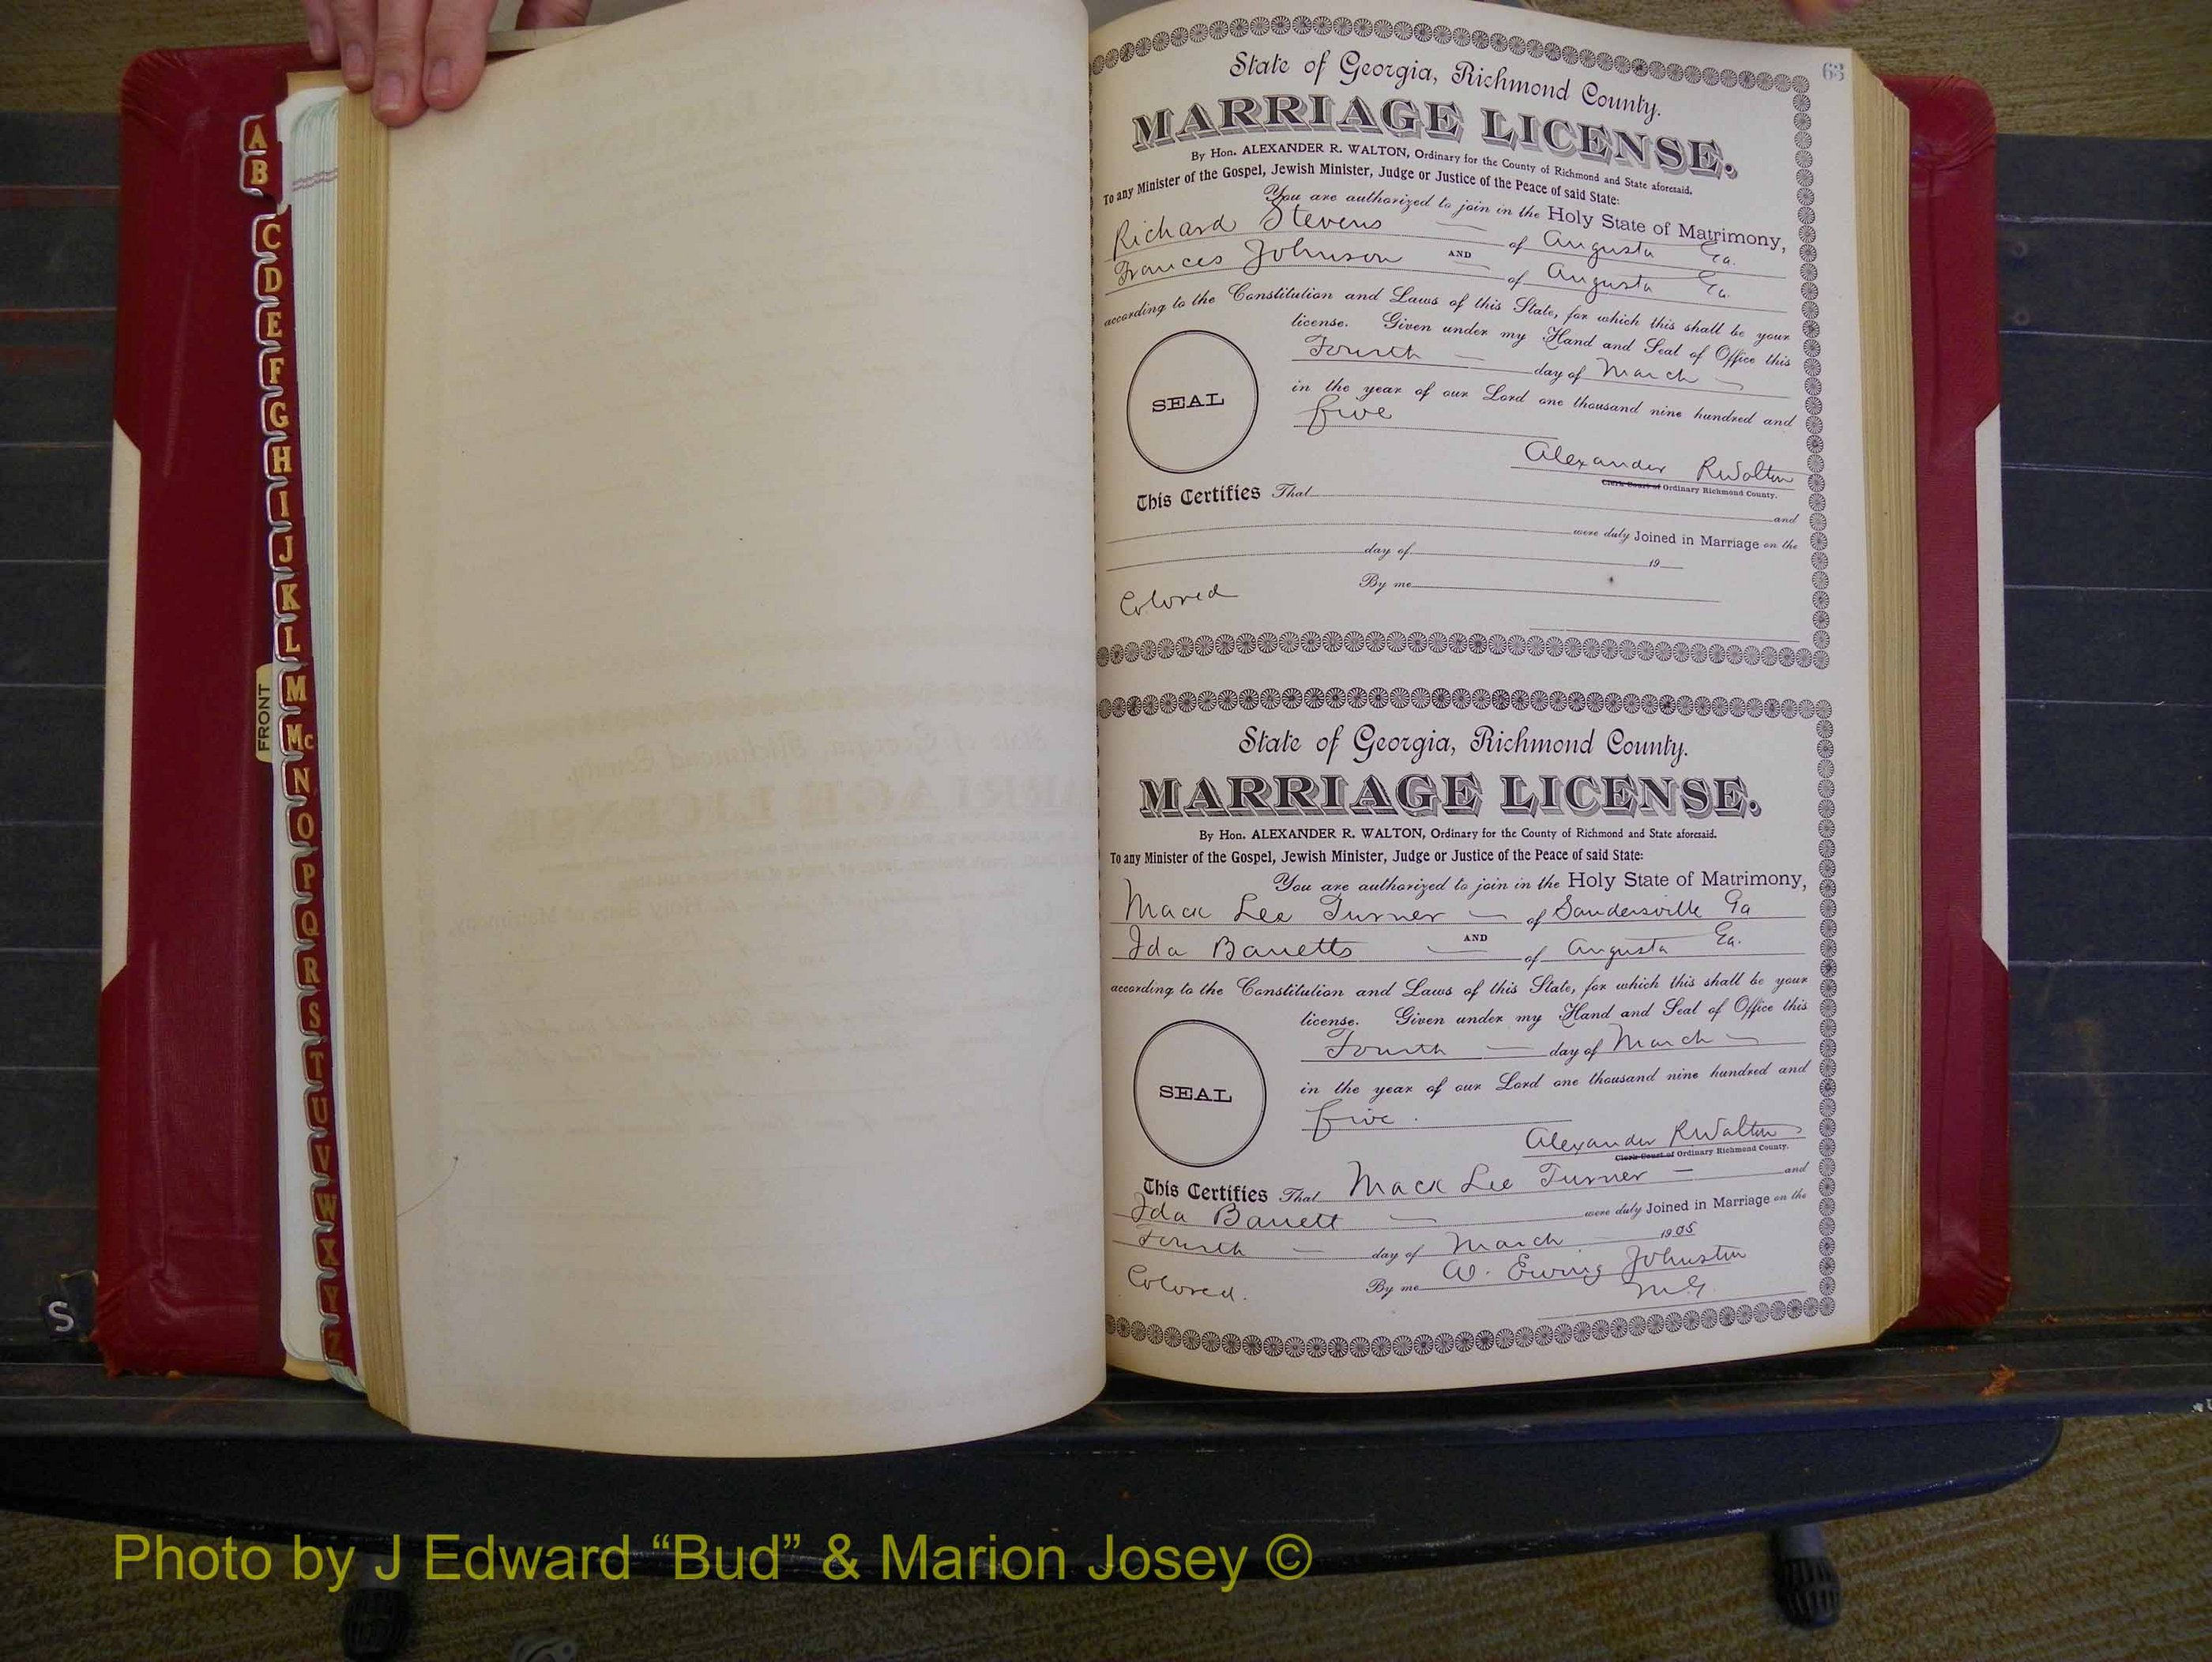 A
B
C
D
E
F
G
H
I
J
K
L
M
Mc
N
O
P
Q
R
S
T
U
V
W
X
Y
Z
FRONT
S
63
State of Georgia, Richmond County.
MARRIAGE LICENSE.
By Hon. ALEXANDER R. WALTON, Ordinary for the County of Richmond and State aforesaid.
To any Minister of the Gospel, Jewish Minister, Judge or Justice of the Peace of said State:
You are authorized to join in the Holy State of Matrimony,
Richard Stevens of Augusta Ga.
AND
Frances Johnson of Augusta Ga.
according to the Constitution and Laws of this State, for which this shall be your
license. Given under my Hand and Seal of Office this
Fourth day of March
in the year of our Lord one thousand nine hundred and
SEAL
five
Alexander R Walton
Clerk Court of Ordinary Richmond County.
This Certifies That and
were duly Joined in Marriage on the
day of 19
By me
Colored
State of Georgia, Richmond County.
MARRIAGE LICENSE.
By Hon. ALEXANDER R. WALTON, Ordinary for the County of Richmond and State aforesaid.
To any Minister of the Gospel, Jewish Minister, Judge or Justice of the Peace of said State:
You are authorized to join in the Holy State of Matrimony,
Mack Lee Turner of Sandersville Ga
AND
Ida Baretts of Augusta Ga.
according to the Constitution and Laws of this State, for which this shall be your
license. Given under my Hand and Seal of Office this
Fourth day of March
in the year of our Lord one thousand nine hundred and
SEAL
five.
Alexander R Walton
Clerk Court of Ordinary Richmond County.
This Certifies That Mack Lee Turner and
Ida Barrett were duly Joined in Marriage on the
Fourth day of March 1905
By me W. Ewing Johnston
M.G.
Colored.
Photo by J Edward “Bud” & Marion Josey ©